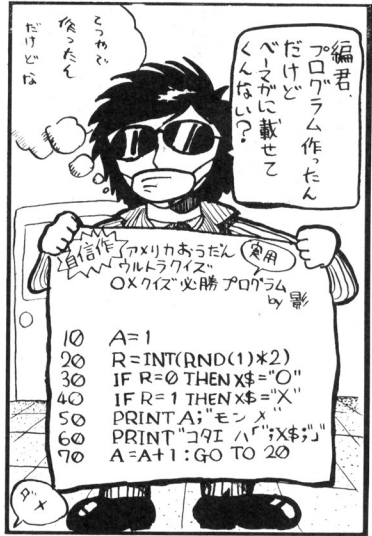 編君、
プログラム作ったん
だけど
ベーマガに載せて
くんない？
てつやで
作ったん
だけどな
自信作
アメリカおうだん
実用
ウルトラクイズ
○×クイズ必勝プログラム
by 影
10 A=1
20 R=INT(RND(1)*2)
30 IF R=0 THEN X$="O"
40 IF R=1 THEN X$="X"
50 PRINT A;"モンメ"
60 PRINT"コタエ ハ「";X$;"」"
70 A=A+1:GO TO 20
ダメ